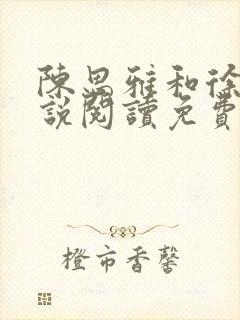 陳思雅和徐
說閱讀免費
橙市香馨